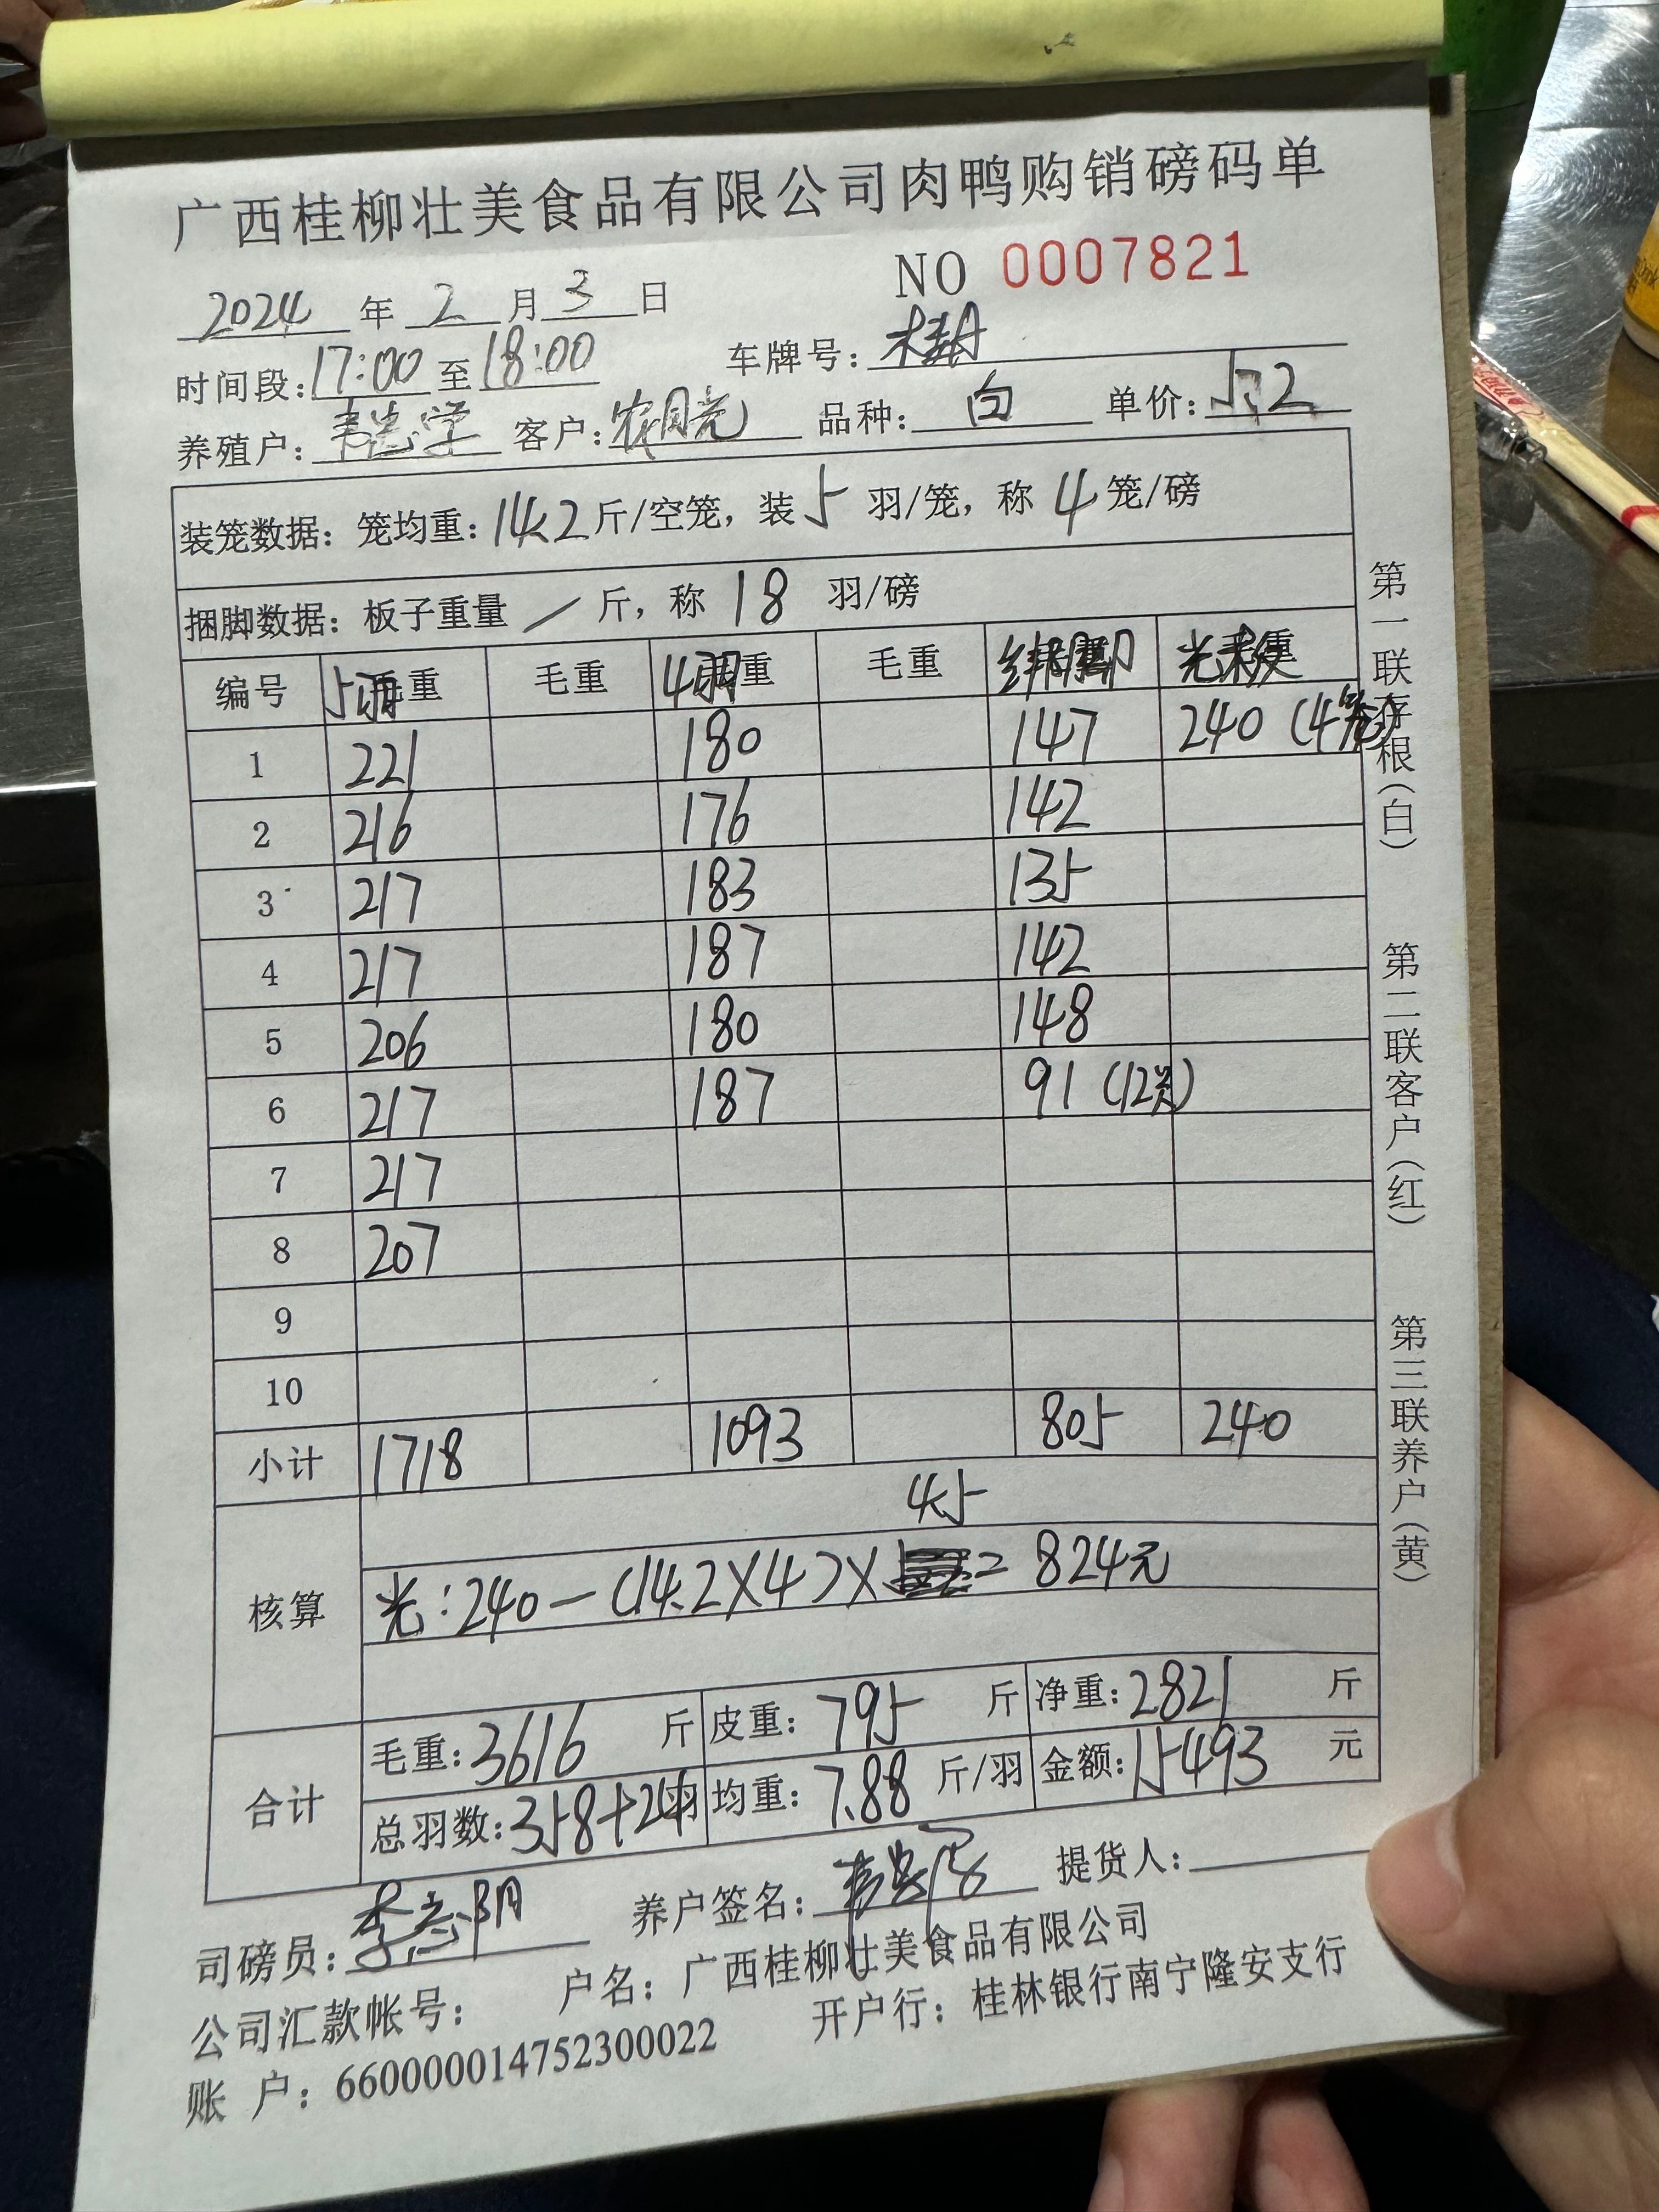 广西桂柳壮美食品有限公司肉鸭购销磅码单
NO 0007821
2024 年 2 月 3 日
时间段: 17:00 至 18:00 车牌号:
养殖户: 韦忠学 客户: 农月亮 品种: 白 单价: 5.2
装笼数据: 笼均重: 14.2 斤/空笼, 装 5 羽/笼, 称 4 笼/磅
捆脚数据: 板子重量 / 斤, 称 18 羽/磅
编号 5羽 毛重 毛重 4羽 毛重 毛重 绑脚
1 221 180 147 240
2 216 176 142
3 217 183 135
4 217 187 142
5 206 180 148
6 217 187 91 (12只)
7 217
8 207
9
10
小计 1718 1093 805 240
核算
4.5
光: 240-(14.2×4)× = 824元
合计
毛重: 3616 斤 皮重: 795 斤 净重: 2821 斤
总羽数: 358+24羽 均重: 7.88 斤/羽 金额: 15493 元
司磅员: 养户签名: 提货人:
公司汇款帐号: 户名: 广西桂柳壮美食品有限公司
账 户: 660000014752300022 开户行: 桂林银行南宁隆安支行
第一联存根(白)
第二联客户(红)
第三联养户(黄)